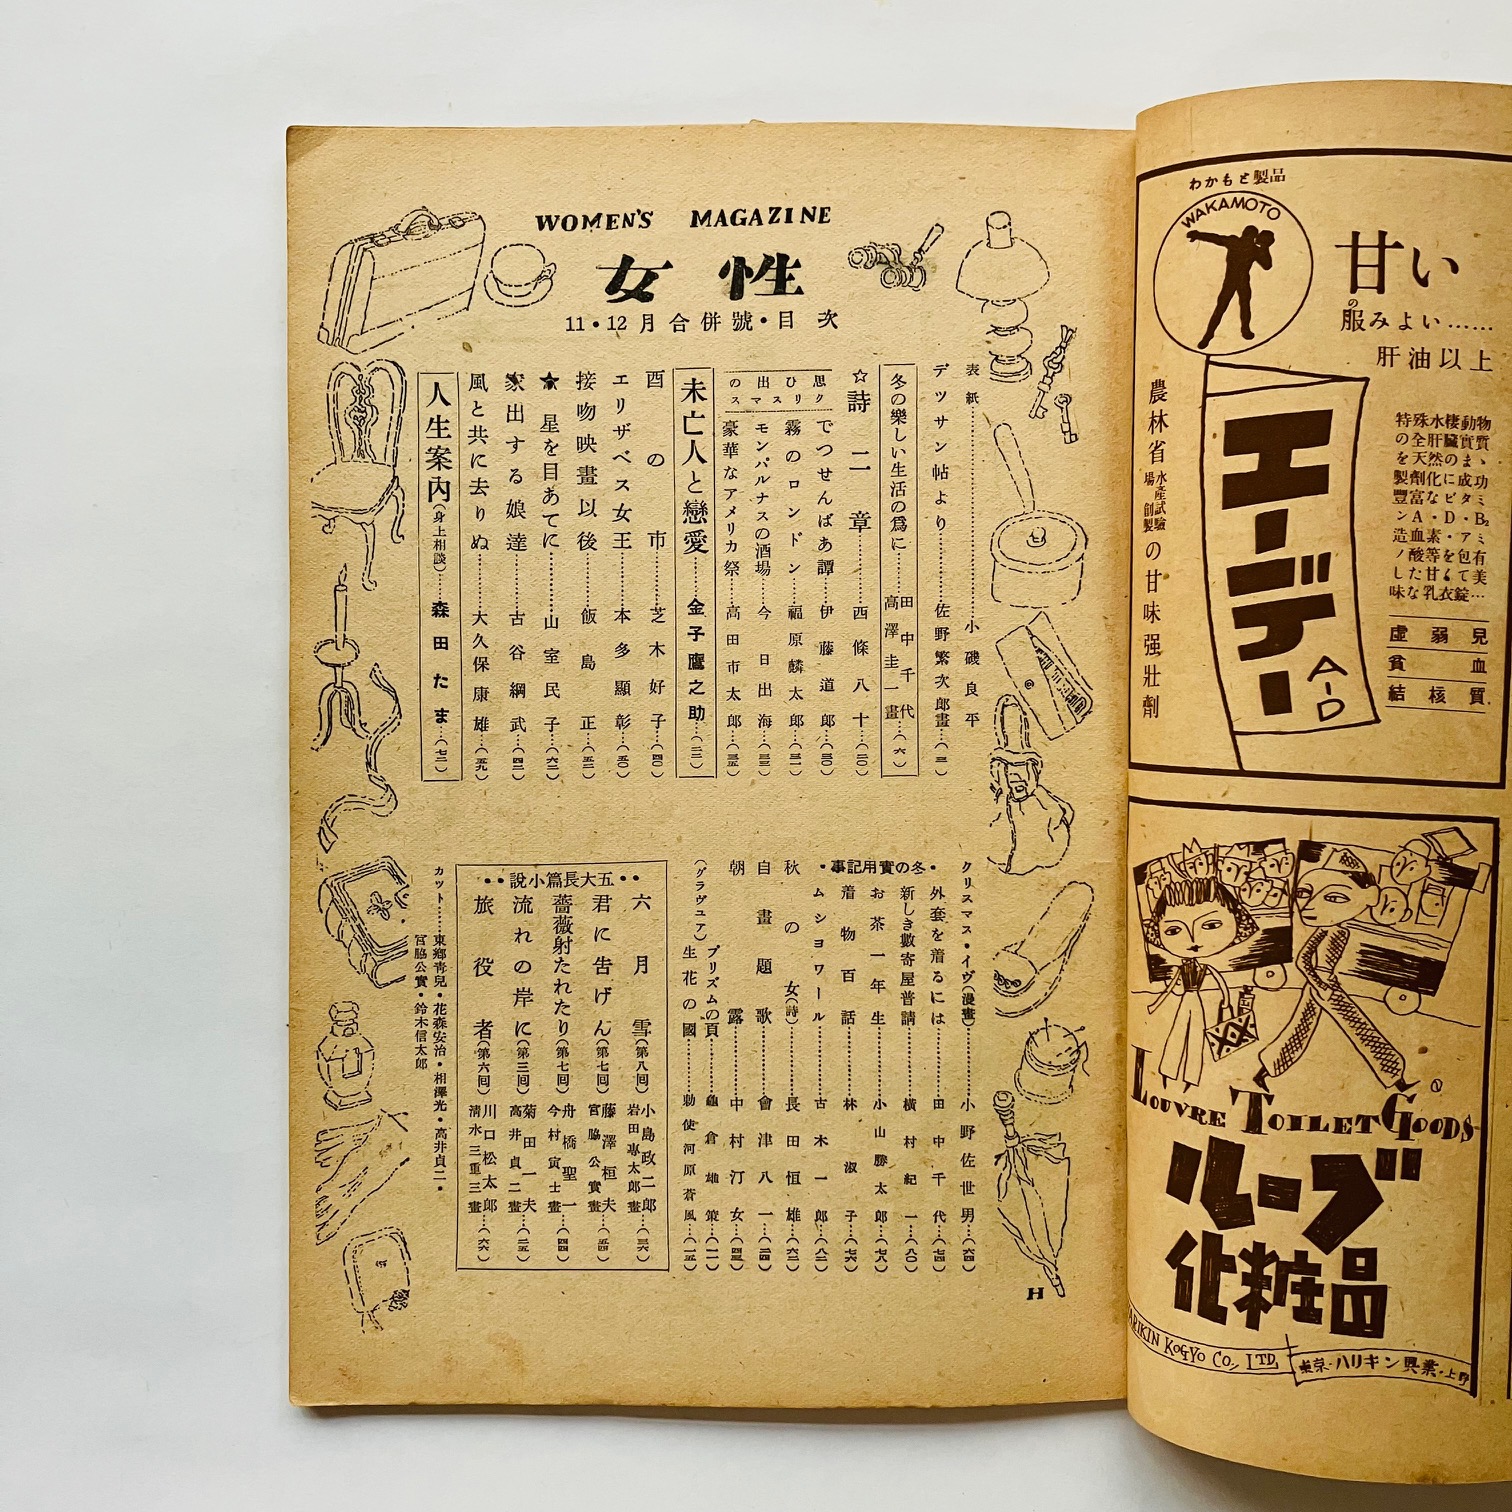 WOMEN'S MAGAZINE
女性
11・12月合併號・目次
表紙……小磯良平
デツサン帖より……佐野繁次郎畫…(三)
冬の樂しい生活の爲に……田中千代 高澤圭一畫…(六)
☆詩二章……西條八十…(二〇)
思ひ出の クリスマス
でつせんばあ譚……伊藤道郎…(三〇)
霧のロンドン……福原麟太郎…(三一)
モンパルナスの酒場……今日出海…(三三)
豪華なアメリカ祭……高田市太郎…(三五)
未亡人と戀愛……金子鷹之助…(二二)
酉の市……芝木好子…(四〇)
エリザベス女王……本多顯彰…(五〇)
接吻映畫以後……飯島正…(五二)
★星を目あてに……山室民子…(六二)
家出する娘達……古谷綱武…(四二)
風と共に去りぬ……大久保康雄…(五九)
人生案內(身上相談)……森田たま…(七二)
クリスマス・イヴ(漫畫)……小野佐世男…(六四)
・冬の實用記事・
外套を着るには……田中千代…(七四)
新しき數寄屋普請……横村紀一…(八〇)
お茶一年生……小山勝太郎…(七八)
着物百話……林淑子…(七六)
ムシヨワール……古木一郎…(八二)
秋の女(詩)……長田恒雄…(六二)
自畫題歌……會津八一…(二四)
朝露……中村汀女…(四三)
(グラヴユア)
プリズムの頁……龜倉雄策…(一一)
生花の國……勅使河原蒼風…(一五)
・・五大長篇小說・・
六月雪(第八回) 小島政二郎 岩田專太郎畫…(三六)
君に吿げん(第七回) 藤澤桓夫 宮脇公實畫…(五四)
薔薇射たれたり(第七回) 舟橋聖一 今村寅士畫…(四四)
流れの岸に(第三回) 菊田一夫 高井貞二畫…(二五)
旅役者(第六回) 川口松太郎 淸水三重三畫…(六六)
カツト……東鄕靑兒・花森安治・相澤光・高井貞二・
宮脇公實・鈴木信太郎
H
わかもと製品
WAKAMOTO
甘い
の服みよい……
肝油以上
エーデー
A-D
特殊水棲動物
の全肝臟實質
を天然のまゝ
製劑化に成功
豐富なビタミ
ンA・D・B₂
造血素・アミ
ノ酸等を包有
した甘くて美
味な乳衣錠…
虛弱兒
貧血
結核質
農林省水產試驗場創製の甘味强壯劑
LOUVRE TOILET GOODS
ルーブ
化粧品
ARIKIN KOGYO CO., LTD.
東京・ハリキン興業・上野